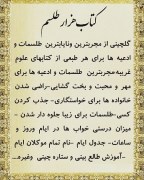 کتاب هزار طلسم
گلچینی از مجربترین ونایابترین طلسمات و
ادعیه ها برای هر طبعی از کتابهای علوم
غریبه مجربترین طلسمات و ادعیه ها برای
مهر و محبت و بخت گشایی-راضی شدن
خانواده ها برای خواستگاری- جذب کردن
کسی-طلسمات برای زیبا جلوه دار شدن -
میزان درستی خواب ها در ایام وروز و
ساعات- جدول ایام -نام تمام موکلان ایام
-آموزش طالع بینی و ستاره چینی وغیره...